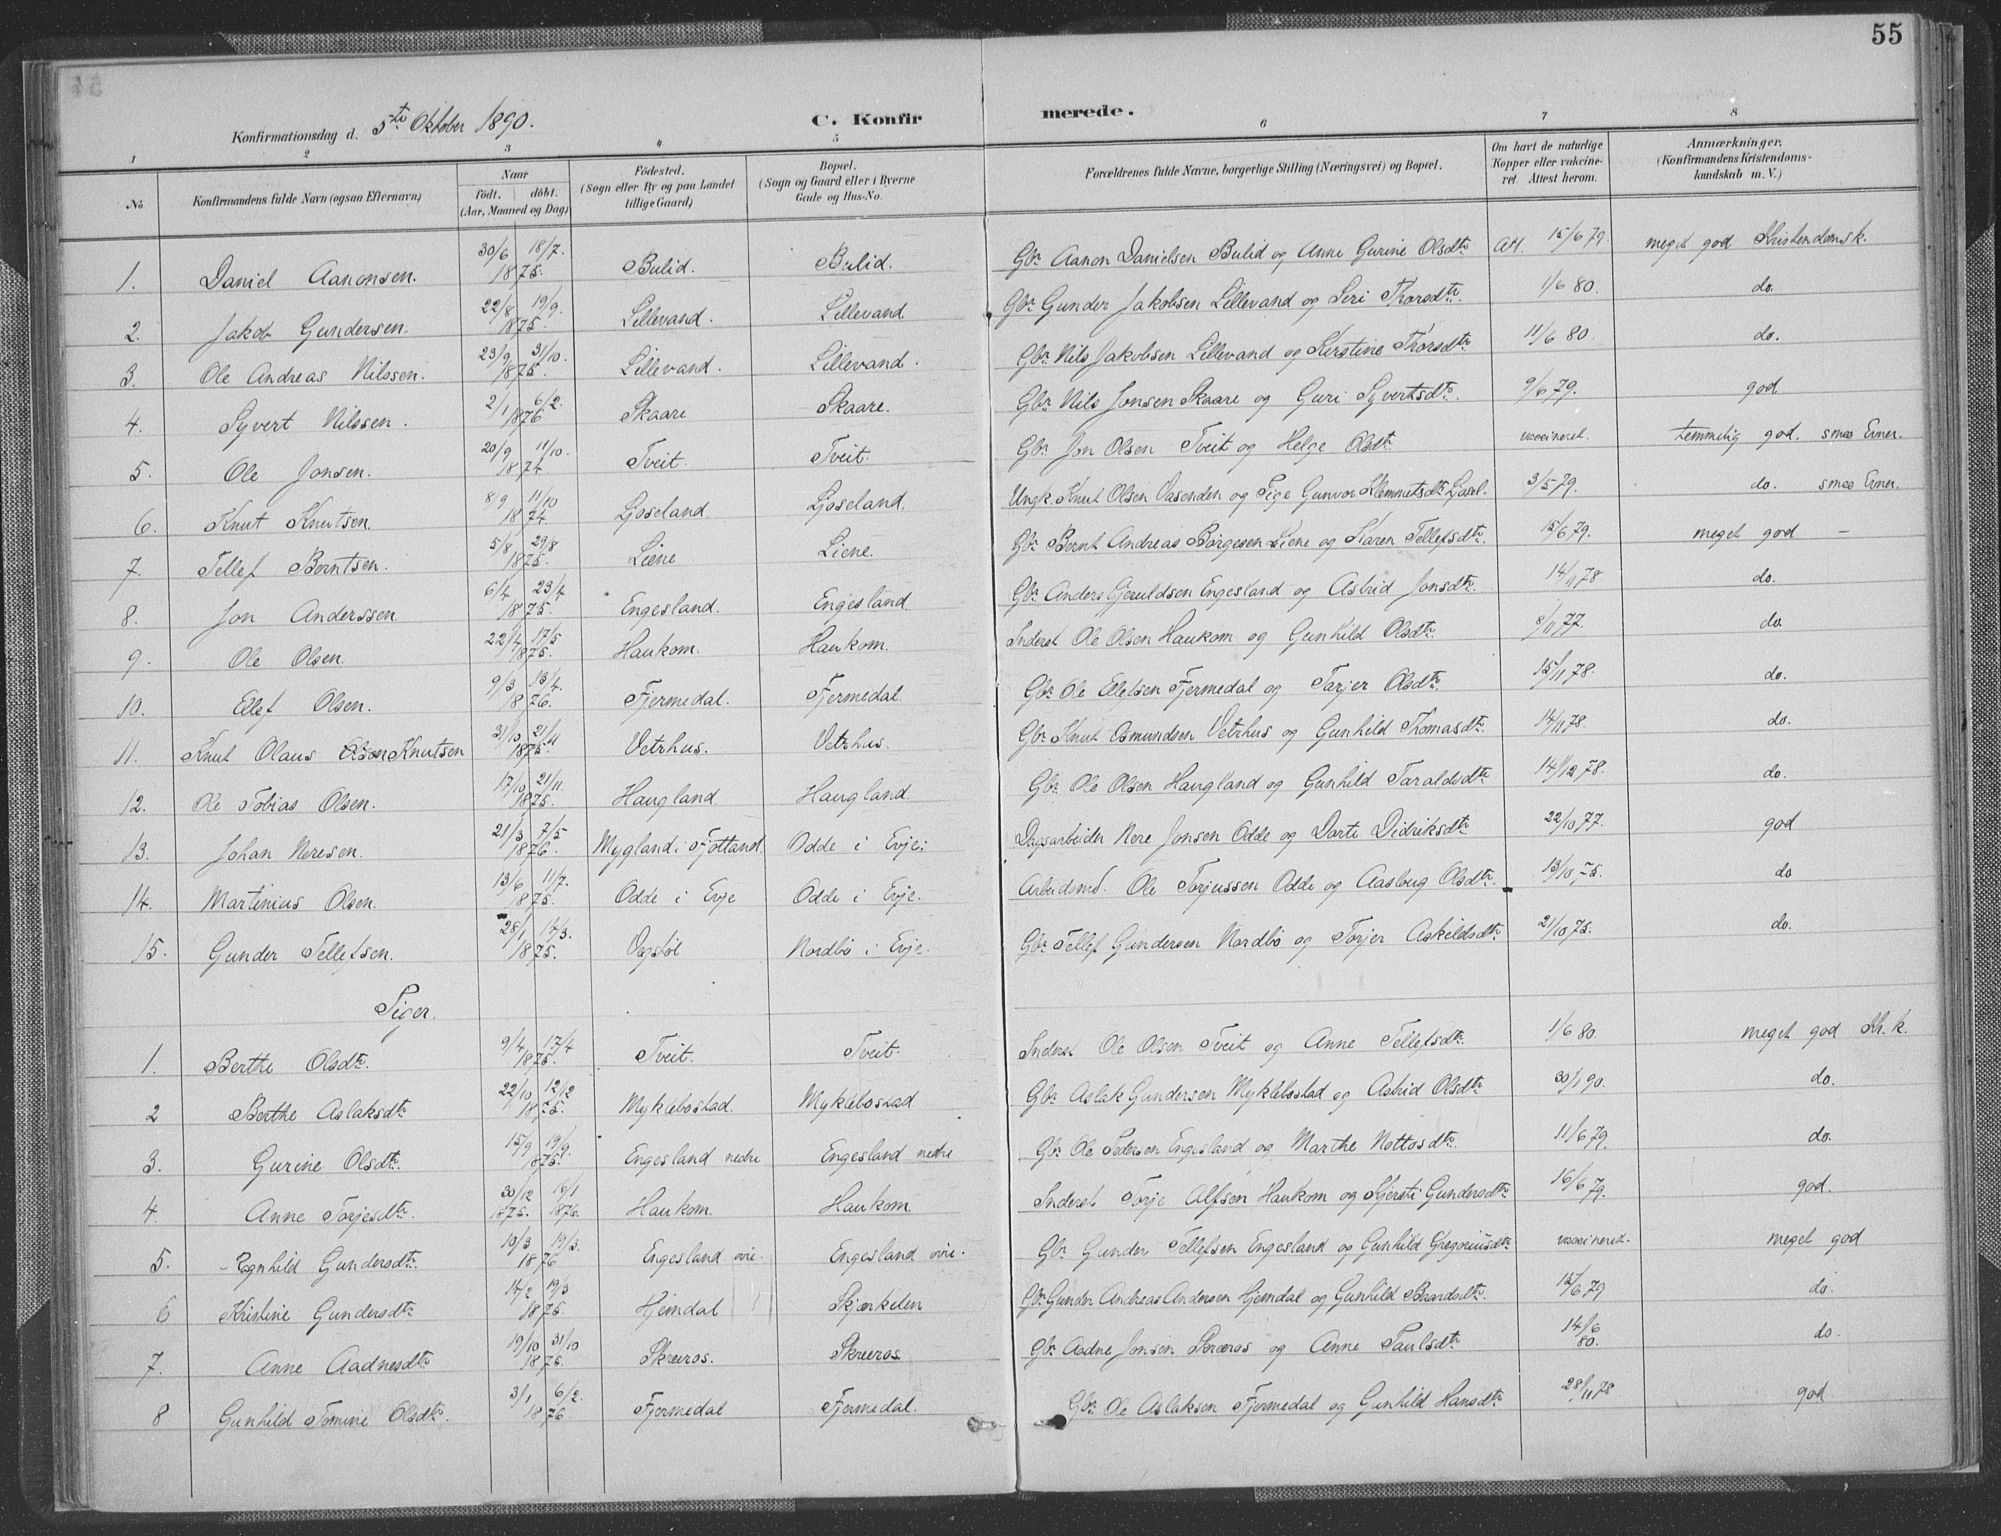 55
Konfirmationsdag d. 5te Oktober 1890. C. Konfirmerede.
1 2 3 4 5 6 7 8
No. Konfirmandens fulde Navn (ogsaa Efternavn) Naar födt. döbt. (Aar, Maaned og Dag) Födested. (Sogn eller By og paa Landet tillige Gaard) Bopæl. (Sogn og Gaard eller i Byerne Gade og Hus-No. Forældrenes fulde Navne, borgerlige Stilling (Næringsvei) og Bopæl. Om havt de naturlige Kopper eller vakcineret. Attest herom. Anmærkninger. (Konfirmandens Kristendomskundskab m. V.)
1. Daniel Aanonsen. 30/6 18/7. 1875. Bulid. Bulid. Gbr Aanon Danielsen Bulid og Anne Gurine Olsdtr Att. 15/6 79. meget god Kristendomsk.
2. Jakob Gundersen. 22/8 19/9. 1875. Lillevand. Lillevand. Gbr Gunder Jakobsen Lillevand og Siri Thorsdtr. 1/6 80. do.
3. Ole Andreas Nilssen. 23/9 31/10. 1875. Lillevand. Lillevand. Gbr Nils Jakobsen Lillevand og Kirstine Thorsdtr 11/6 80. do.
4. Syvert Nilssen. 2/1 6/2. 1876 Skaare Skaare. Gbr Nils Jonsen Skaare og Guri Syvertsdtr. 9/6 79. god
5. Ole Jonsen. 20/9 11/10. 1874. Tveit. Tveit. Gbr Jon Olsen Tveit og Helge Olsdtr vaccineret. temmelig god. smaa Evner.
6. Knut Knutsen. 8/9 11/10 1874. Ljoseland. Ljoseland. Ungk. Knut Olsen Vasenden og Pige Gunvor Klemmetsdtr Ljosel. 3/5 79. do. smaa Evner.
7. Tellef Berntsen. 5/8 29/8 1875. Liene Liene. Gbr Bernt Andreas Börgesen Liene og Karen Tellefsdtr. 15/6 79. meget god –
8. Jon Anderssen. 6/4 23/4 1875. Engesland. Engesland Gbr Anders Gjeruldsen Engesland og Astrid Jonsdtr. 14/11 78 do.
9. Ole Olsen. 22/4 17/5 1875. Haukom. Haukom. Inderst Ole Olsen Haukom og Gunhild Olsdtr. 8/11 77. do.
10. Ellef Olsen. 9/3 13/4. 1876. Fjermedal. Fjermedal. Gbr Ole Ellefsen Fjermedal og Tarjer Olsdtr 15/11 78. do.
11. Knut Olaus Olsen Knutsen 31/10 21/11 1875. Vetrhus. Vetrhus. Gbr Knut Osmundsen Vetrhus og Gunhild Thomasdtr. 14/11 78. do.
12. Ole Tobias Olsen. 17/10 21/11. 1875. Haugland Haugland. Gbr Ole Olsen Haugland og Gunhild Taraldsdtr 14/12 78. do.
13. Johan Neresen. 21/3 7/5 1876. Mygland i Fjotland. Odde i Evje. Dagsarbeider Nere Jonsen Odde og Dorte Didriksdtr 22/10 77. god
14. Martinius Olsen. 13/6 11/7. 1875. Odde i Evje Odde i Evje. Arbeidsmd. Ole Torjussen Odde og Aasloug Olsdtr. 13/10 75. do
15. Gunder Tellefsen. 28/1 14/3. 1875. Nordbö i Evje. Gbr Tellef Gundersen Nordbö og Torjer Askeldsdtr 21/10 75. do.
Piger.
1. Berthe Olsdtr. 9/4 17/4 1875. Tveit. Tveit. Inderst Ole Olsen Tveit og Anne Tellefsdtr. 1/6 80. meget god Kr. k.
2 Berthe Aslaksdtr 22/10 12/12 1875. Myklebostad. Myklebostad Gbr Aslak Gundersen Myklebostad og Astrid Olsdtr 30/1 90. do.
3. Gurine Olsdtr. 15/9 19/9. 1875. Engesland nedre Engesland nedre Gbr Ole Pedersen Engesland og Marthe Nottosdtr. 11/6 79. do.
4. Anne Torjesdtr. 30/12 1875. 19/1 1876. Haukom. Haukom. Inderst Torje Alfsen Haukom og Kjersti Gundersdtr 16/6 79. god.
5. Ragnhild Gundersdtr. 10/3 19/3. 1876 Engesland övre. Engesland övre. Gbr Gunder Tellefsen Engesland og Gunhild Gregoriusdtr vaccineret. meget god
6 Kristine Gundersdtr. 14/2 19/3 1875. Hjemdal Skjerkelen Gbr Gunder Andreas Andersen Hjemdal og Gunhild Baardsdtr. 15/6 79 do.
7. Anne Aadnesdtr 19/10 31/10 1875. Skreros. Skreros. Gbr Aadne Jonsen Skreros og Anne Paulsdtr 14/6 80. do.
8 Gunhild Tomine Olsdtr. 3/1 6/2. 1876 Fjermedal Fjermedal. Gbr Ole Aslaksen Fjermedal og Gunhild Hansdtr 28/11 78 god